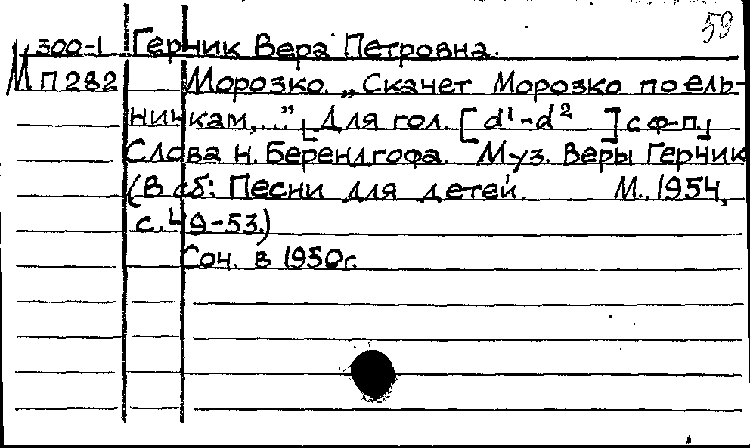 59
М 300-1 Герчик Вера Петровна.
П 282 Морозко. „Скачет Морозко по ель-
ничкам,..." [Для гол. [d¹-d² ] с ф-п.]
Слова н. Берендгофа. Муз. Веры Герчик
(В сб: Песни для детей. М., 1954,
с. 49-53.)
Соч. в 1950г.